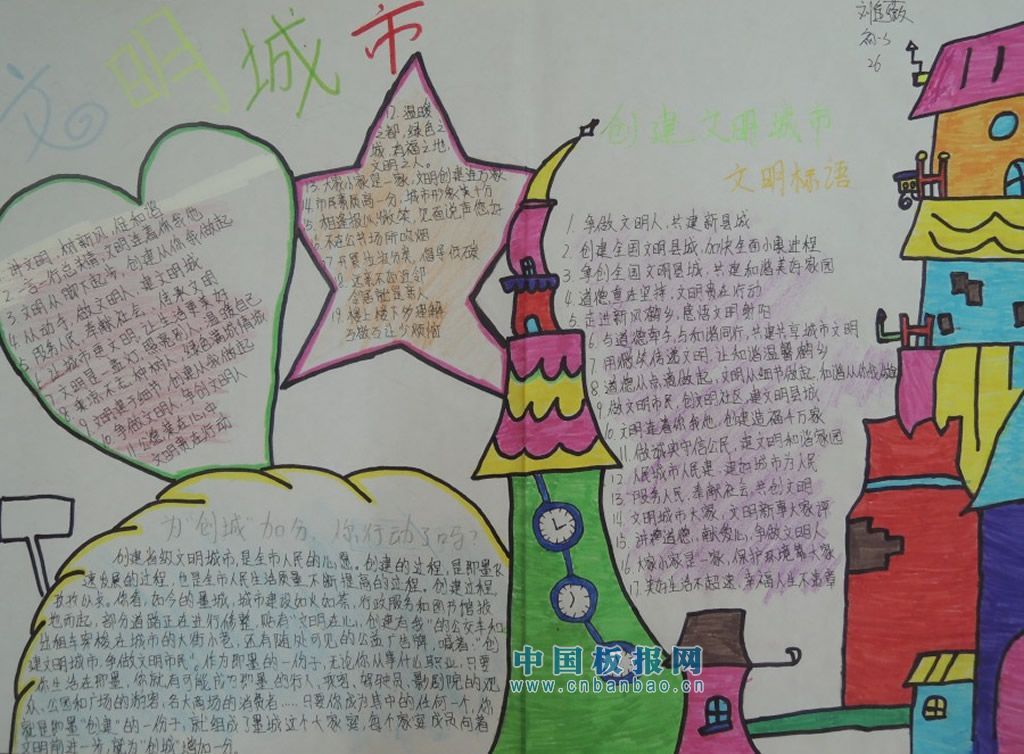 文明城市
刘
26
讲文明,树新风,促和谐
2.言一句总关情,文明连着你我他
3.文明从脚下起步,创建从你我做起
4.从动手,做文明人,建文明城
5.服务人民,奉献社会,传承文明
6.让城市更文明,让生活更美好
7.文明是一盏灯,照亮别人,温暖自己
8.来东不去种树,绿色满城情
9.文明建于细节,创建从我做起
10.争做文明人,争创文明
11.公德美在心中
文明贵在行动
12.温暖
之都,绿色之
城,有福之地,
文明之人。
13.大家小家是一家,文明创建连万家
14.市民素质高一分,城市形象美十分
15.相逢报以微笑,见面说声您好
16.不在公共场所吸烟
17.开展垃圾分类,倡导低碳
18.远亲不如近邻
邻居就是亲人
19.楼上楼下多理解
互敬互让少烦恼
创建文明城市
文明标语
1.争做文明人,共建新县城
2.创建全国文明县城,加快全面小康进程
3.争创全国文明县城,共建和谐美好家园
4.道德重在坚持,文明贵在行动
5.走进新风鹤乡,感悟文明射阳
6.与道德牵手,与和谐同行,共建共享城市文明
7.用微笑传递文明,让和谐温馨鹤乡
8.道德从点滴做起,文明从细节做起,和谐从你我做起
9.做文明市民,创文明社区,建文明县城
10.文明连着你我他,创建造福千万家
11.做诚实守信公民,建文明和谐家园
12.人民城市人民建,建好城市为人民
13.服务人民,奉献社会,共创文明
14.文明城市大家,文明新事大家评
15.讲道德,献爱心,争做文明人
16.大家小家是一家,保护环境靠大家
17.美好生活不超速,幸福人生不出章
为"创城"加分,你行动了吗?
创建省级文明城市,是全市人民的心愿。创建的过程,是即墨飞
速发展的过程,也是全市人民生活质量不断提高的过程。创建过程,
你看,如今的墨城,城市建设如火如荼,行政服务和图书馆拔
地而起,部分道路正在进行修整,贴有"文明在心,创建有我"的公交车和
出租车穿梭在城市的大街小巷,还有随处可见的公益广告牌,喊着:"创
建文明城市,争做文明市民"。作为即墨的一份子,无论你从事什么职业,只要
你生活在即墨,你就有可能成为即墨的行人、乘客、驾驶员、影剧院的观
众、公园和广场的游客、各大商场的消费者……只要你成为其中的任何一个,你
就是即墨"创建"的一份子,就组成了墨城这个大家庭,每个家庭成员向着
文明前进一步,就为"创城"增加一分。
中国板报网
www.cnbanbao.cn